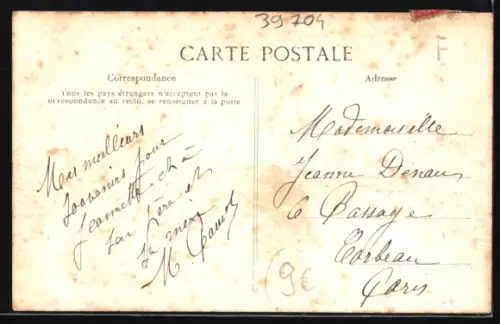 39704
F
CARTE POSTALE
Correspondance
Tous les pays étrangers n'acceptent pas la
correspondance au recto, se renseigner à la poste
Adresse
Mes meilleurs
souvenirs pour
Jeannette et à
son père et
sa mère
M.
Mademoiselle
Jeanne Denau
6 Passage
Corbeau
Paris
9€